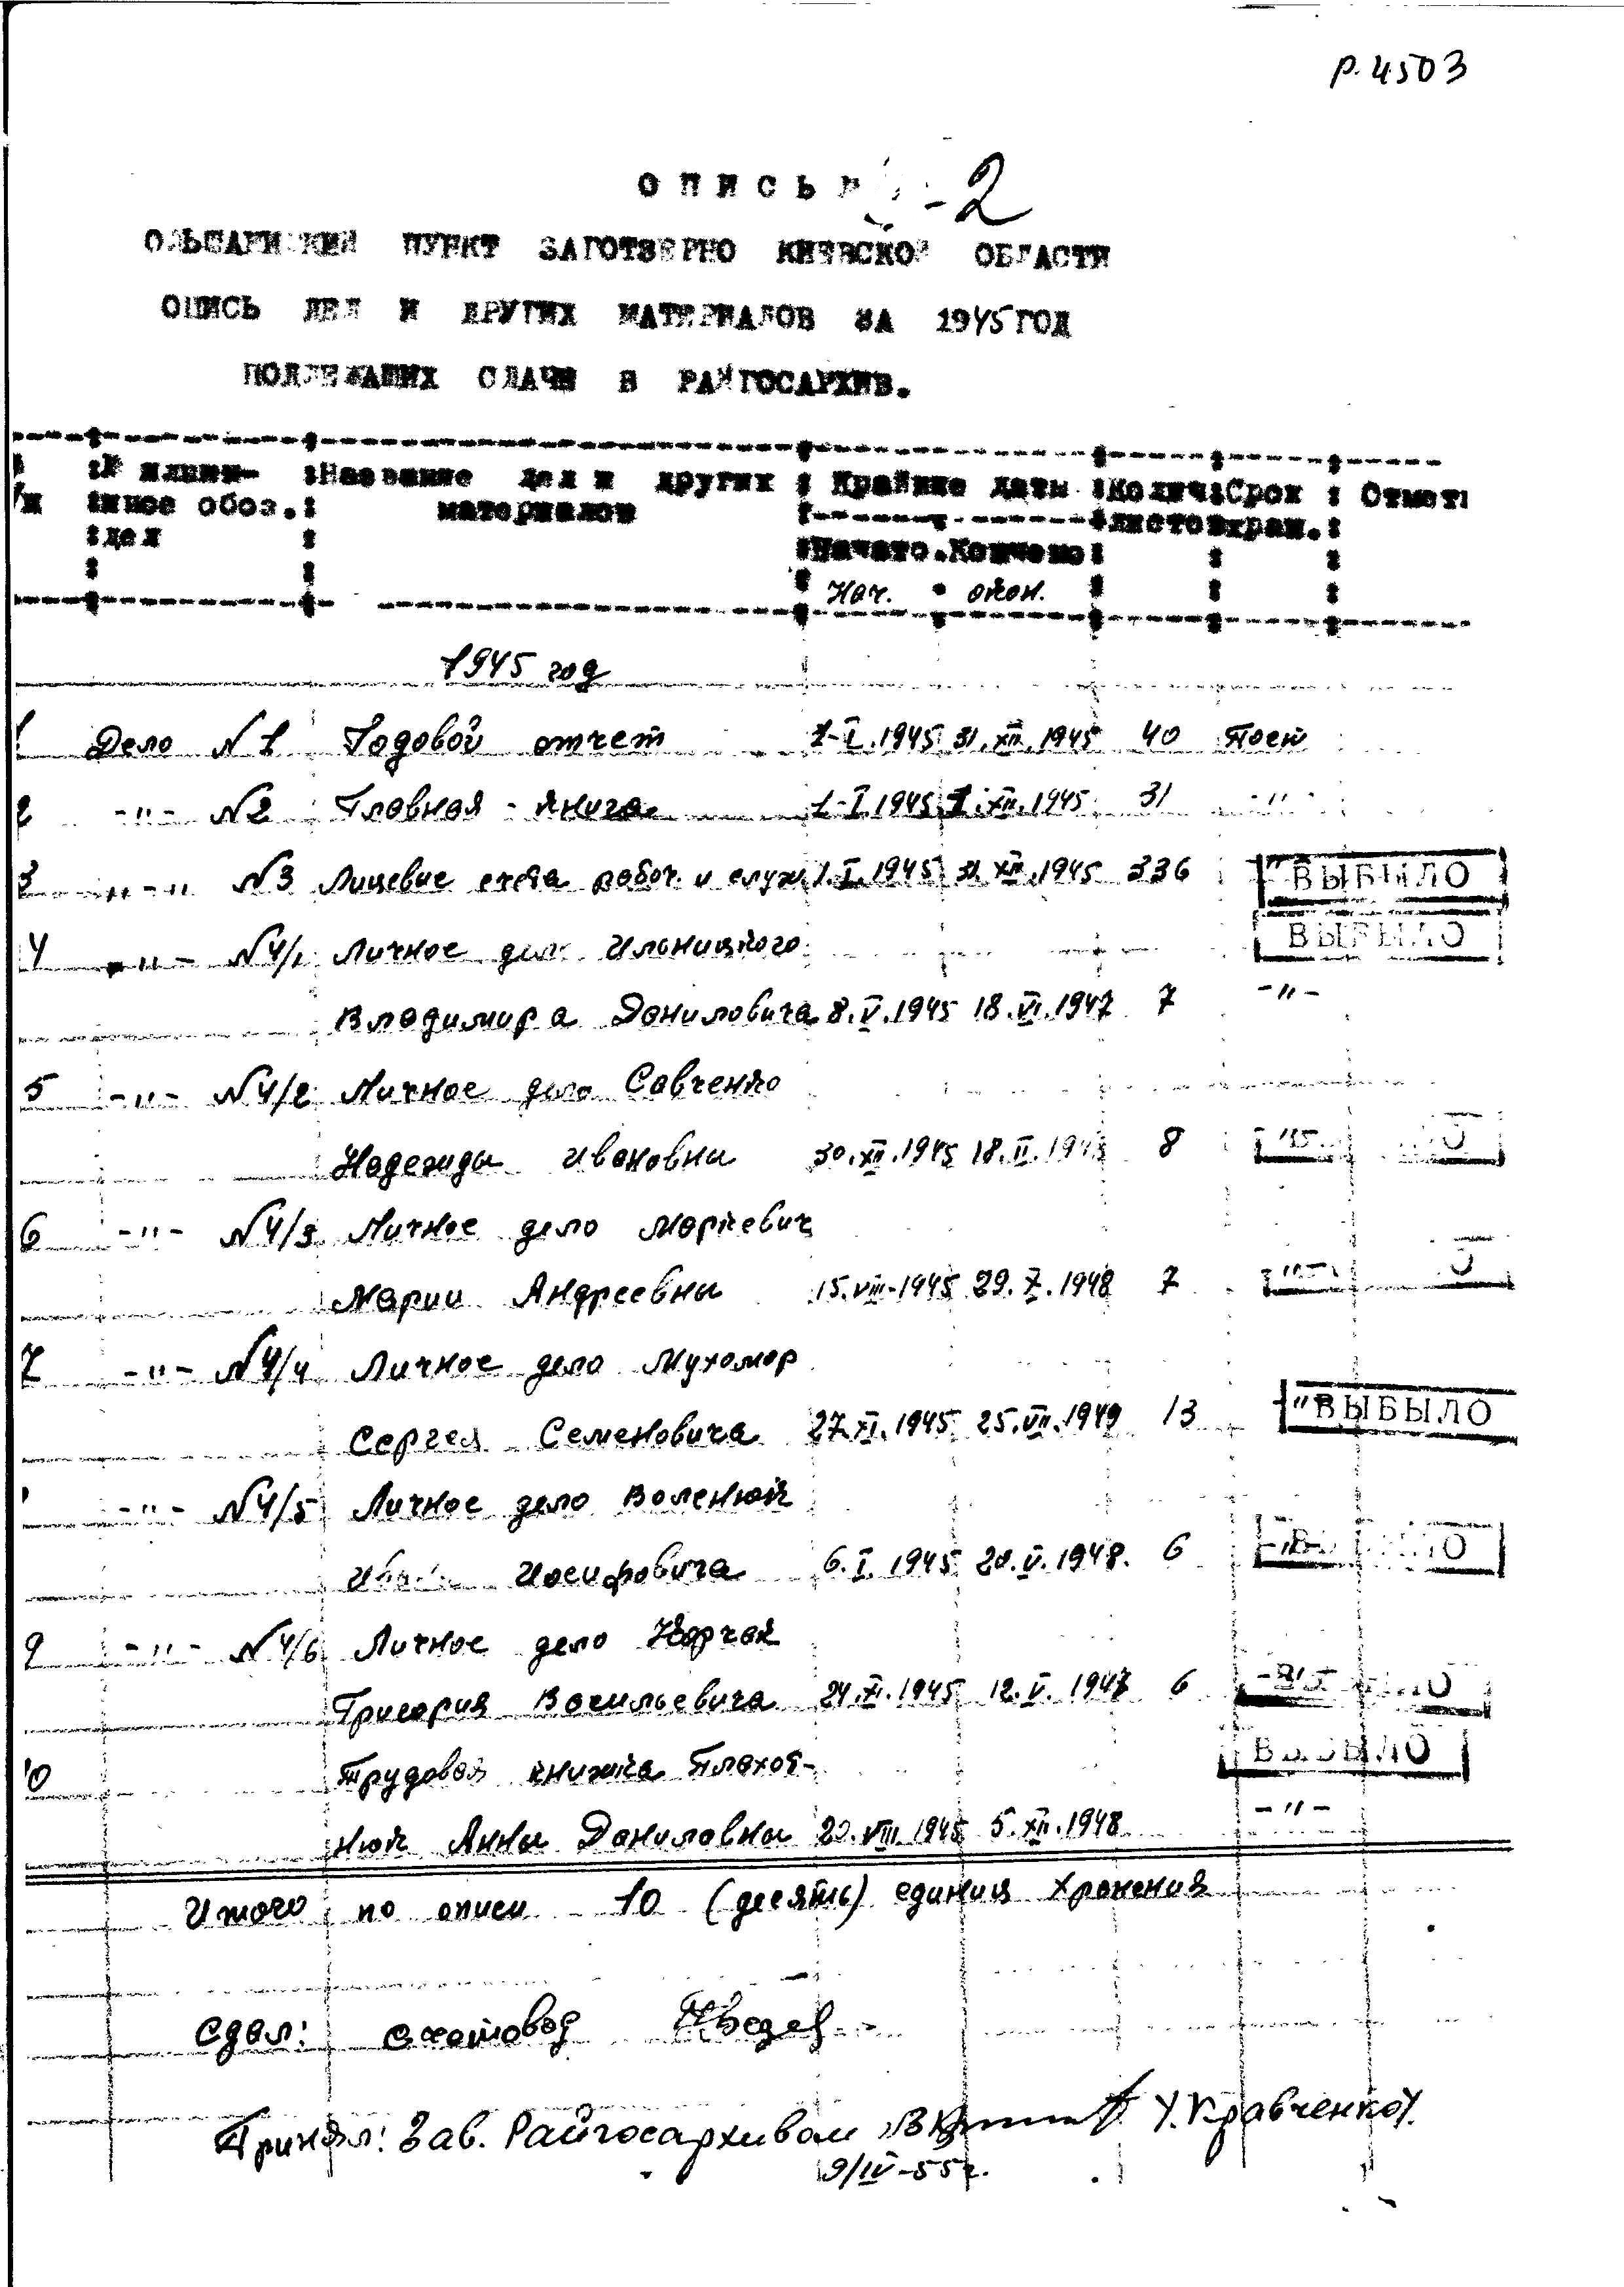 Р. 4503
ОПИСЬ № - 2
ОЛЬШАНИЦКИЙ ПУНКТ ЗАГОТЗЕРНО КИЕВСКОЙ ОБЛАСТИ
ОПИСЬ ДЕЛ И ДРУГИХ МАТЕРИАЛОВ ЗА 1945 ГОД
ПОДЛЕЖАЩИХ СДАЧИ В РАЙГОСАРХИВ.
Название дел и других Крайние даты Колич Срок Отмет
/п нное обоз. материалов листов хран.
дел Начато. Кончено
Нач. окон.
1945 год
1 Дело №1 Годовой отчет 1-I.1945 31.XII.1945 40 Пост
2 -"- №2 Главная - книга 1-I.1945 1.XII.1945 31 -"-
3 "-" №3 Лицевие счета робоч. и служ. 1.I.1945 31 XII.1945 336 " ВЫБЫЛО
4 "- №4/1 Личное дело Ильницкого ВЫБЫЛО
Владимира Даниловича 8.V.1945 18.VI.1947 7 -"-
5 -"- №4/2 Личное дело Савченко
Надежды Ивановны 30.XII.1945 18.II.1945 8 -"-
6 -"- №4/3 Личное дело Маркевич
Марии Андреевны 15.VIII-1945 29.X.1948 7 -"-
7 -"- №4/4 Личное дело Мухомор
Сергея Семеновича 27.XI.1945 25.VII.1949 13 " ВЫБЫЛО
-"- №4/5 Личное дело Воленюк
Ивана Иосифовича 6.I.1945 20.V.1948. 6 -"- ВЫБЫЛО
9 -"- №4/6 Личное дело Корчак
Григория Васильевича 24.XI.1945 12.V.1947 6 -"- ВЫБЫЛО
10 Трудовая книжка Плахот- ВЫБЫЛО
нюк Анны Даниловны 20.VIII.1945 5.XII.1948 -"-
Итого по описи 10 (десять) единиц хранения
Сдал: счетовод
Принял: Зав. Райгосархивом /Кравченко/.
9/IV-55г.